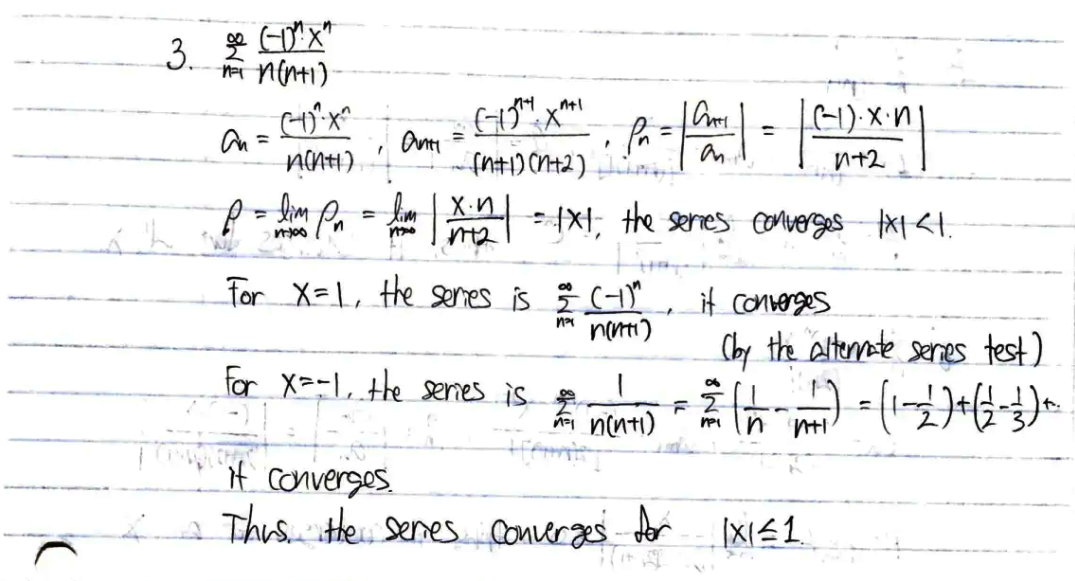 3. $\sum_{n=1}^{\infty} \frac{(-1)^n \cdot x^n}{n(n+1)}$
$a_n = \frac{(-1)^n \cdot x^n}{n(n+1)}$, $a_{n+1} = \frac{(-1)^{n+1} \cdot x^{n+1}}{(n+1)(n+2)}$, $\rho_n = \left|\frac{a_{n+1}}{a_n}\right| = \left|\frac{(-1) \cdot x \cdot n}{n+2}\right|$
$\rho = \lim_{n\to\infty} \rho_n = \lim_{n\to\infty} \left|\frac{x \cdot n}{n+2}\right| = |x|$, the series converges $|x| < 1$.
For $x=1$, the series is $\sum_{n=1}^{\infty} \frac{(-1)^n}{n(n+1)}$, it converges
(by the alternate series test)
For $x=-1$, the series is $\sum_{n=1}^{\infty} \frac{1}{n(n+1)} = \sum_{n=1}^{\infty} \left(\frac{1}{n} - \frac{1}{n+1}\right) = \left(1-\frac{1}{2}\right)+\left(\frac{1}{2}-\frac{1}{3}\right)+\cdots$
it converges.
Thus, the series converges for $|x| \le 1$.